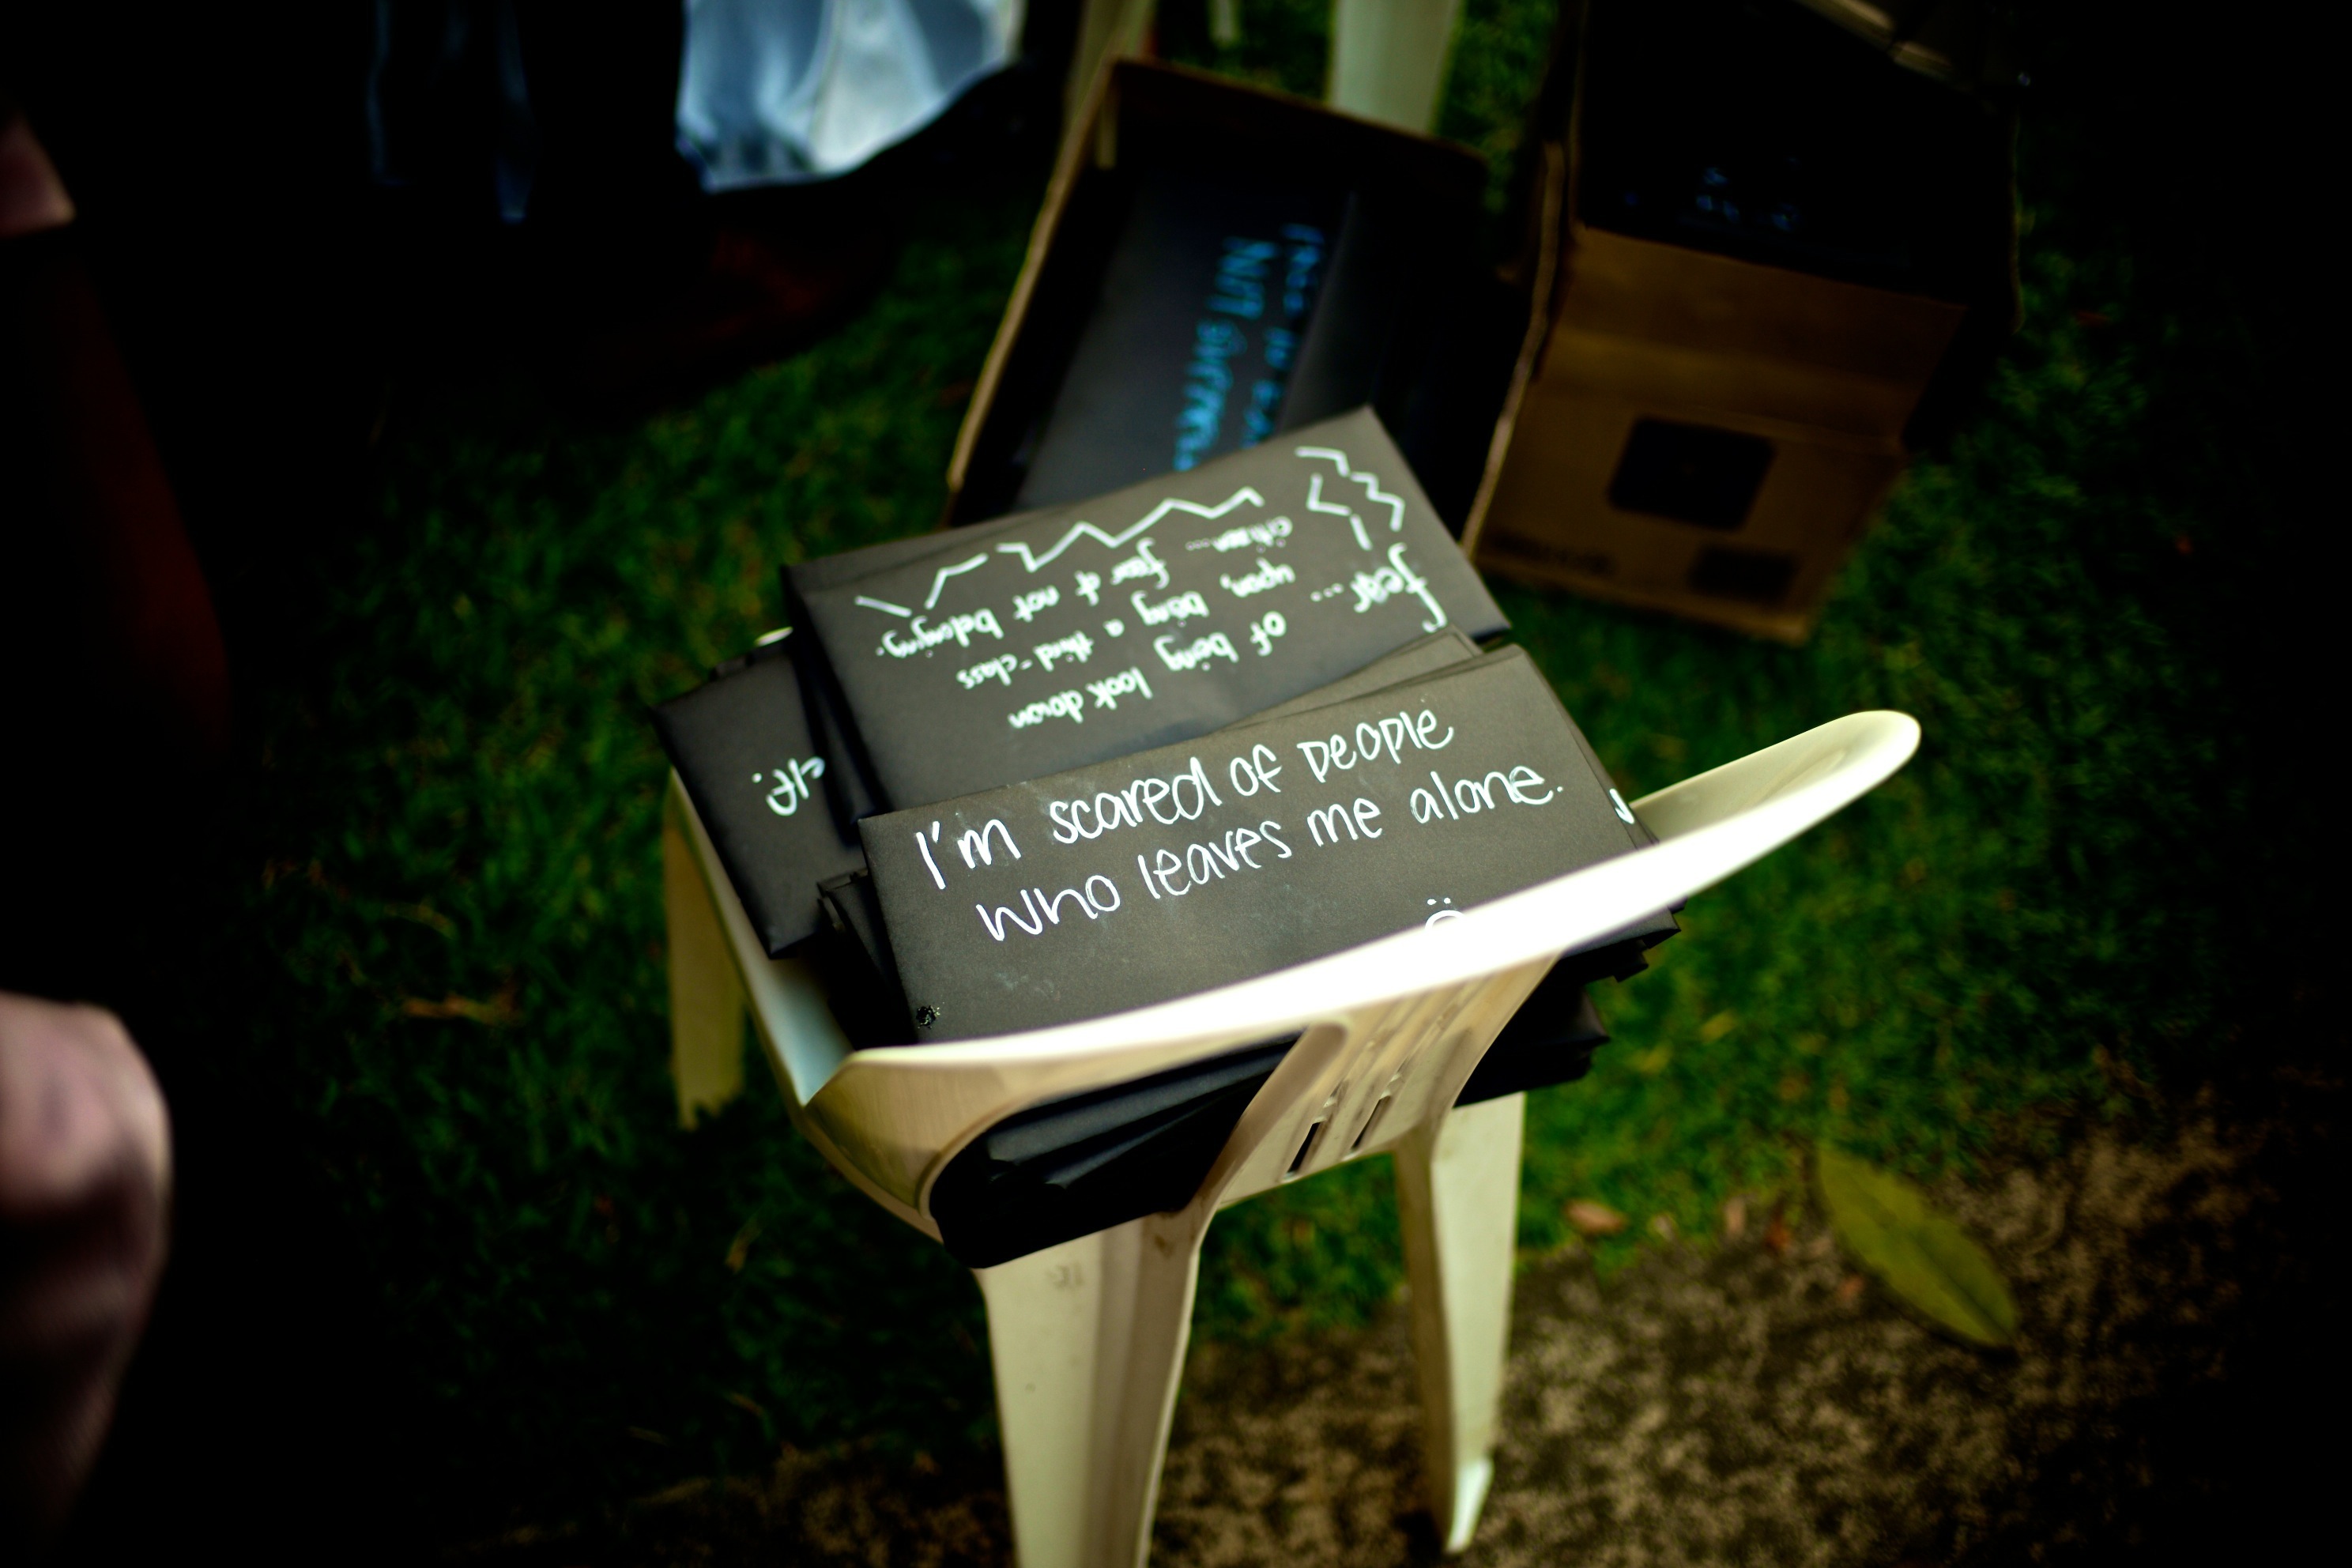 I'm scared of people
who leaves me alone.
fear... of being look down
upon, being a third-class
citizen... fear of not belonging.
elf.